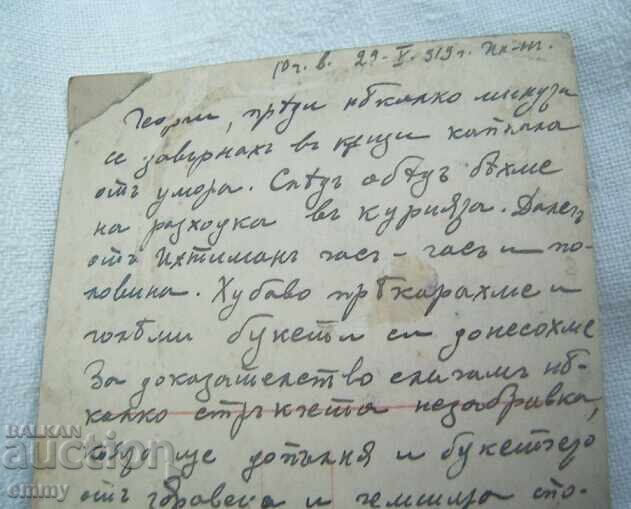 10 ч. в. 29-V-919 г.
Георги, прѣди нѣколко минути
се завърнахъ въ кжщи капнала
отъ умора. Слѣдъ обѣдъ бѣхме
на разходка въ курията. Далеч
отъ Ихтиманъ часъ - часъ и по-
ловина. Хубаво прѣкарахме и
голѣми букети си донесохме
За доказателство слагамъ нѣ-
колко стръкчета незабравка,
които ще допълня и букетчето
отъ здравеца и чемшира сто-
BALKAN
auction
emmy